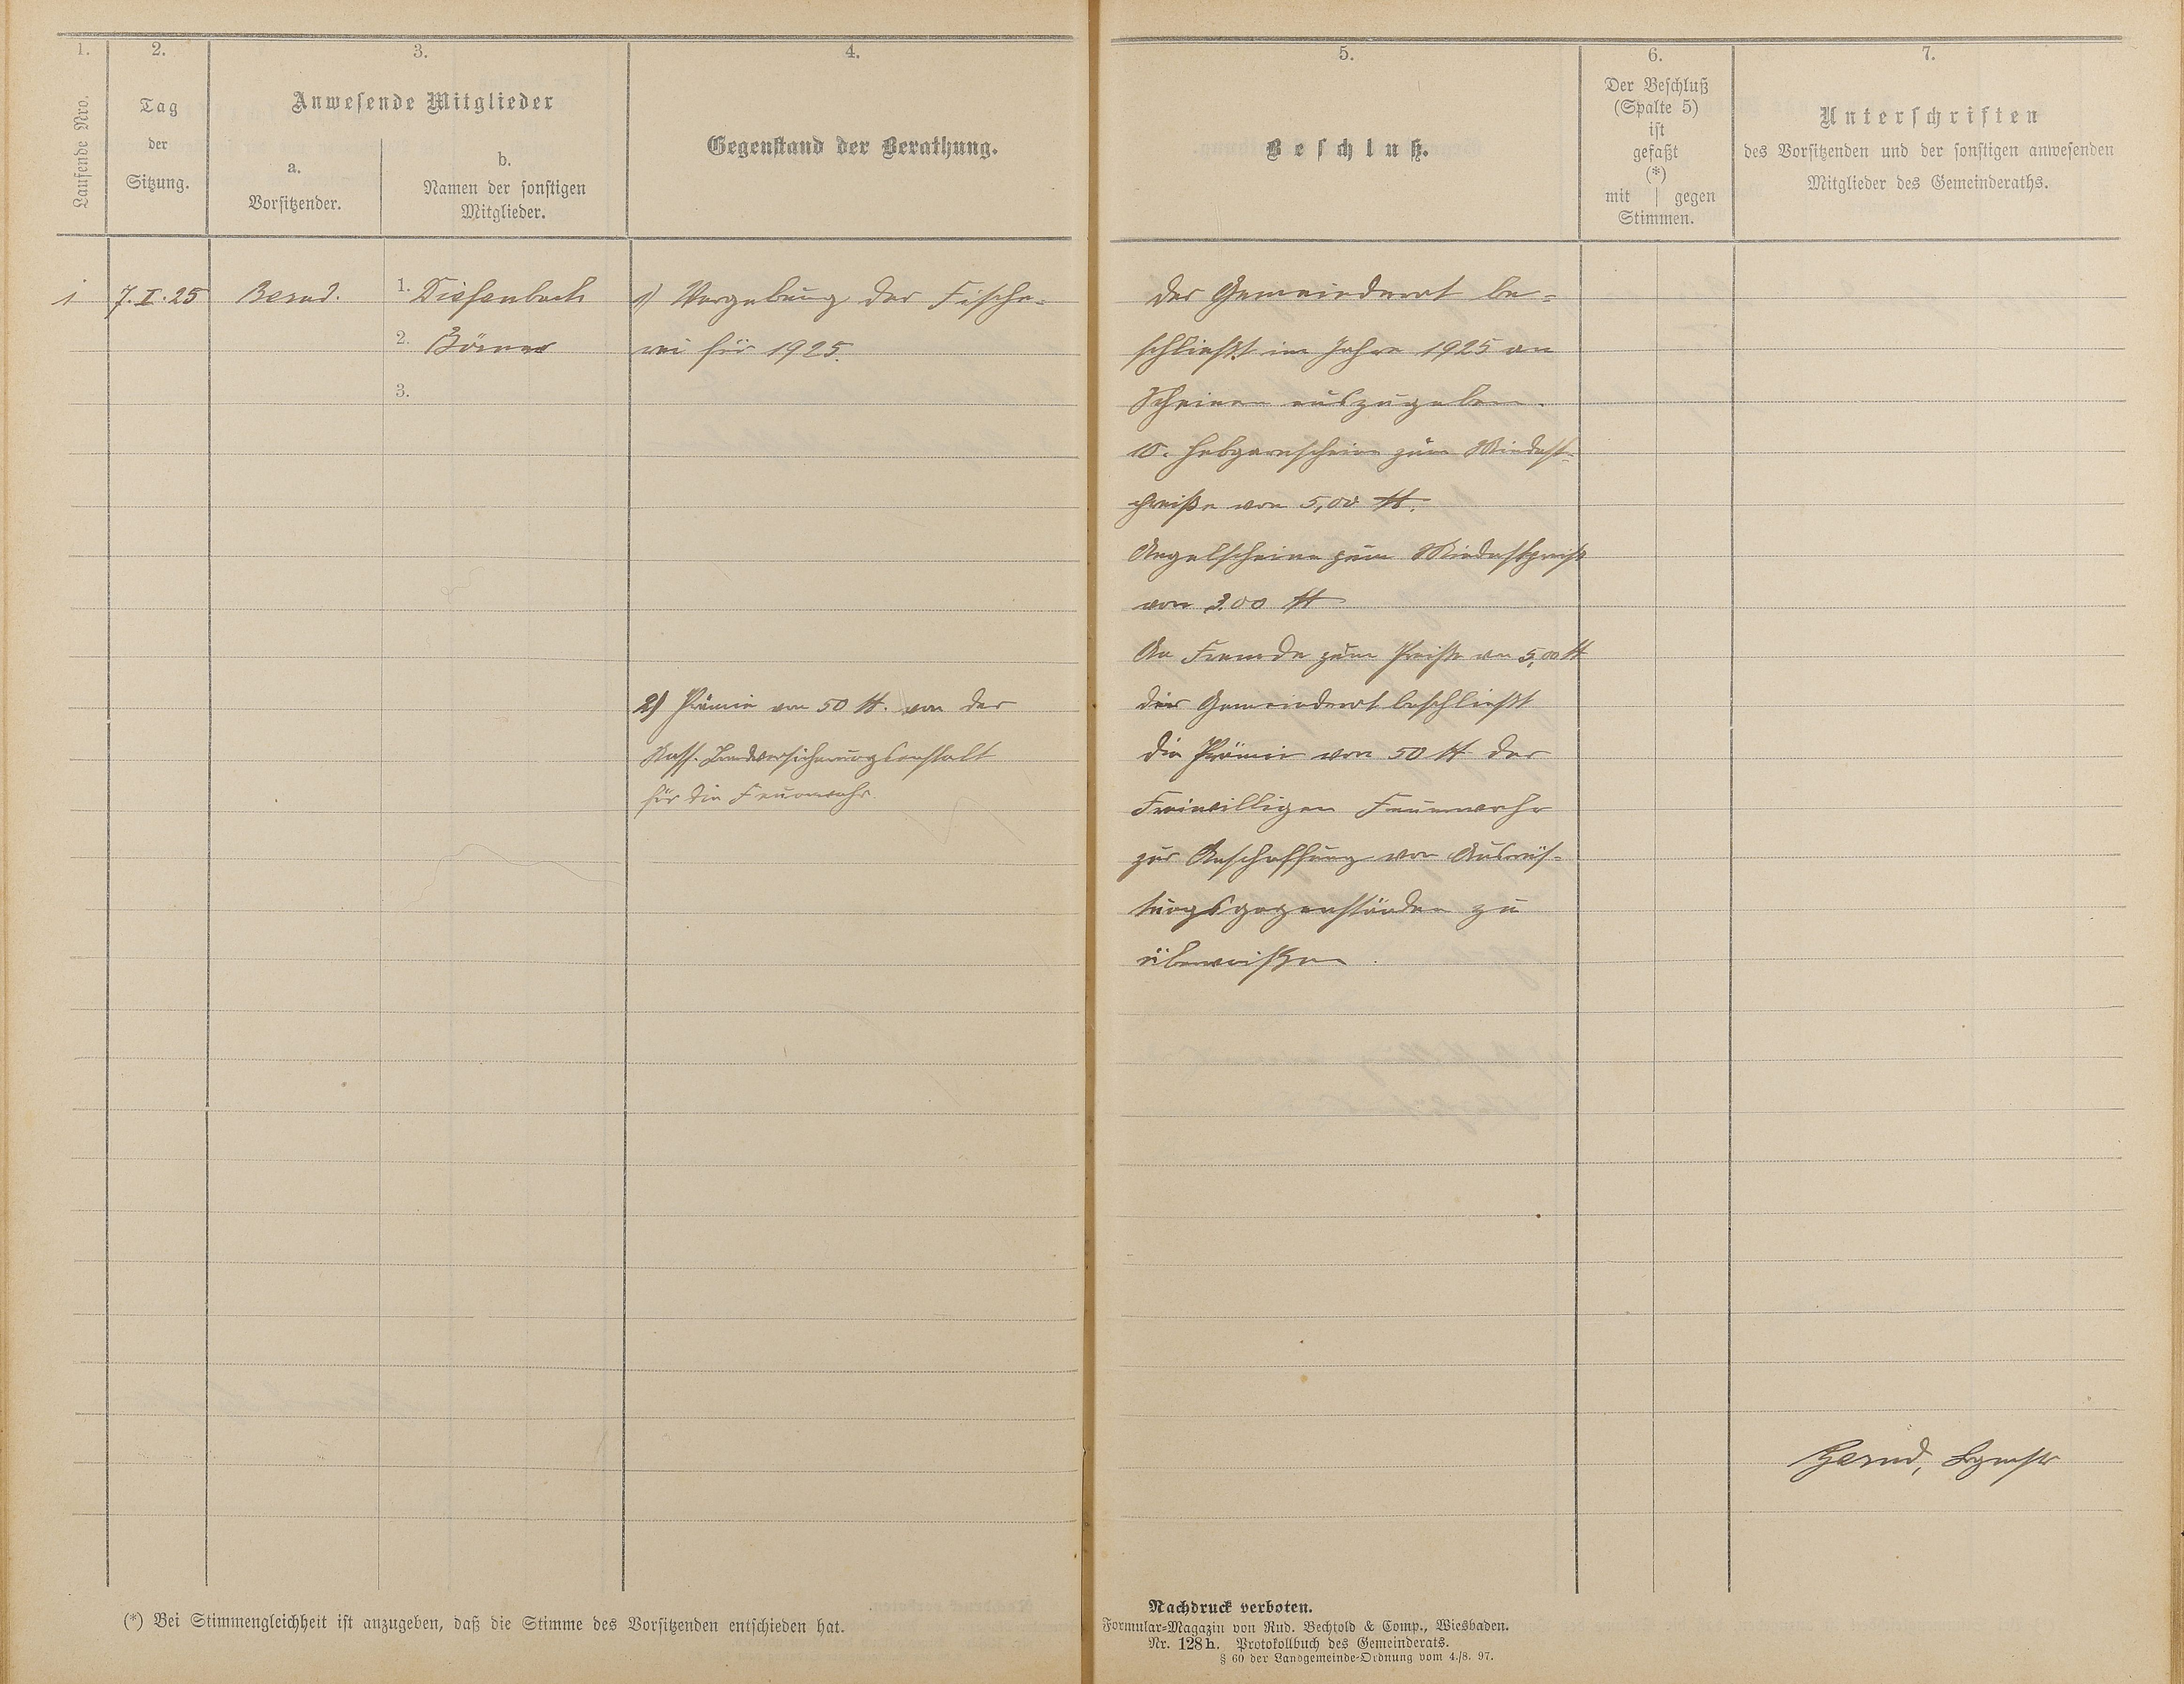 1.
2.
3.
4.
Laufende Nro.
Tag
der
Sitzung.
Anwesende Mitglieder
a.
Vorsitzender.
b.
Namen der sonstigen
Mitglieder.
Gegenstand der Berathung.
1 7.I.25 Bernd. 1. Diefenbach 1) Vergebung der Fische-
2. Börner rei für 1925.
3.
2) Prämie von 50 M. von der
Nass. Brandversicherungsanstalt
für die Feuerwehr.
(*) Bei Stimmengleichheit ist anzugeben, daß die Stimme des Vorsitzenden entschieden hat.
5.
6.
7.
Beschluß.
Der Beschluß
(Spalte 5)
ist
gefaßt
(*)
mit | gegen
Stimmen.
Unterschriften
des Vorsitzenden und der sonstigen anwesenden
Mitglieder des Gemeinderaths.
Der Gemeinderat be-
schließt im Jahre 1925 an
Scheinen auszugeben.
10. Hebgarnscheine zum Mindest-
preiße von 5,00 M.
Angelscheine zum Mindestpreiß
von 3.00 M
An Fremde zum Preiße von 5,00 M
Der Gemeinderat beschließt
die Prämie von 50 M der
Freiwilligen Feuerwehr
zur Anschaffung von Ausrüs-
tungsgegenständen zu
überweißen.
Bernd, Bgmstr
Nachdruck verboten.
Formular-Magazin von Rud. Bechtold & Comp., Wiesbaden.
Nr. 128 h. Protokollbuch des Gemeinderats.
§ 60 der Landgemeinde-Ordnung vom 4./8. 97.